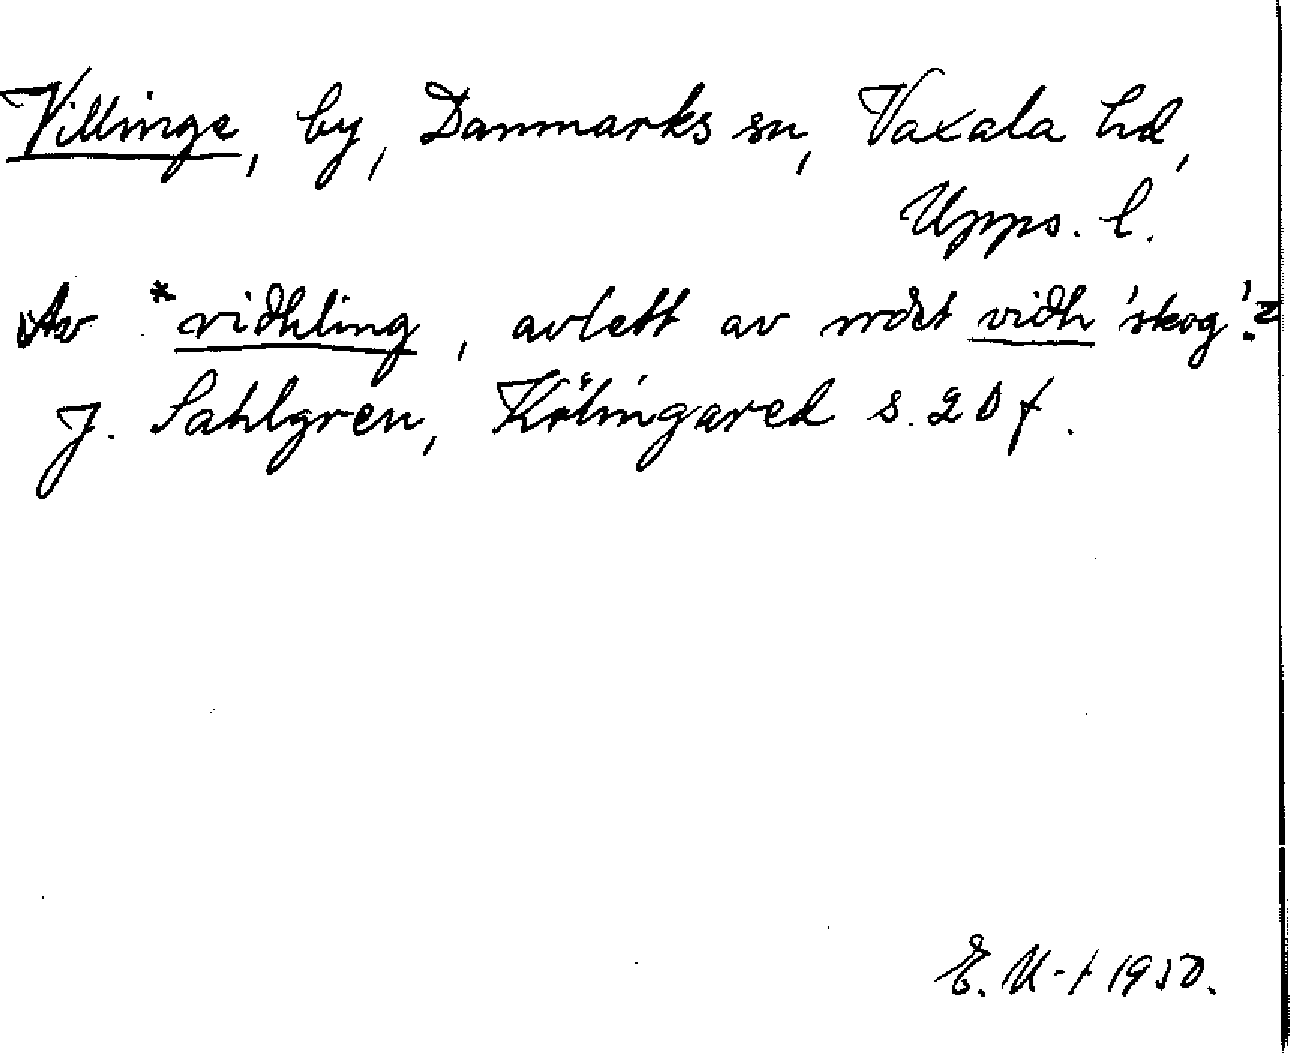 Villinge, by, Danmarks sn, Vaxala hd,
Upps. l.
Av *vidhling, avlett av ordet vidh 'skog'?
J. Sahlgren, Kölingared s. 20 f.
E. U-t 1950.